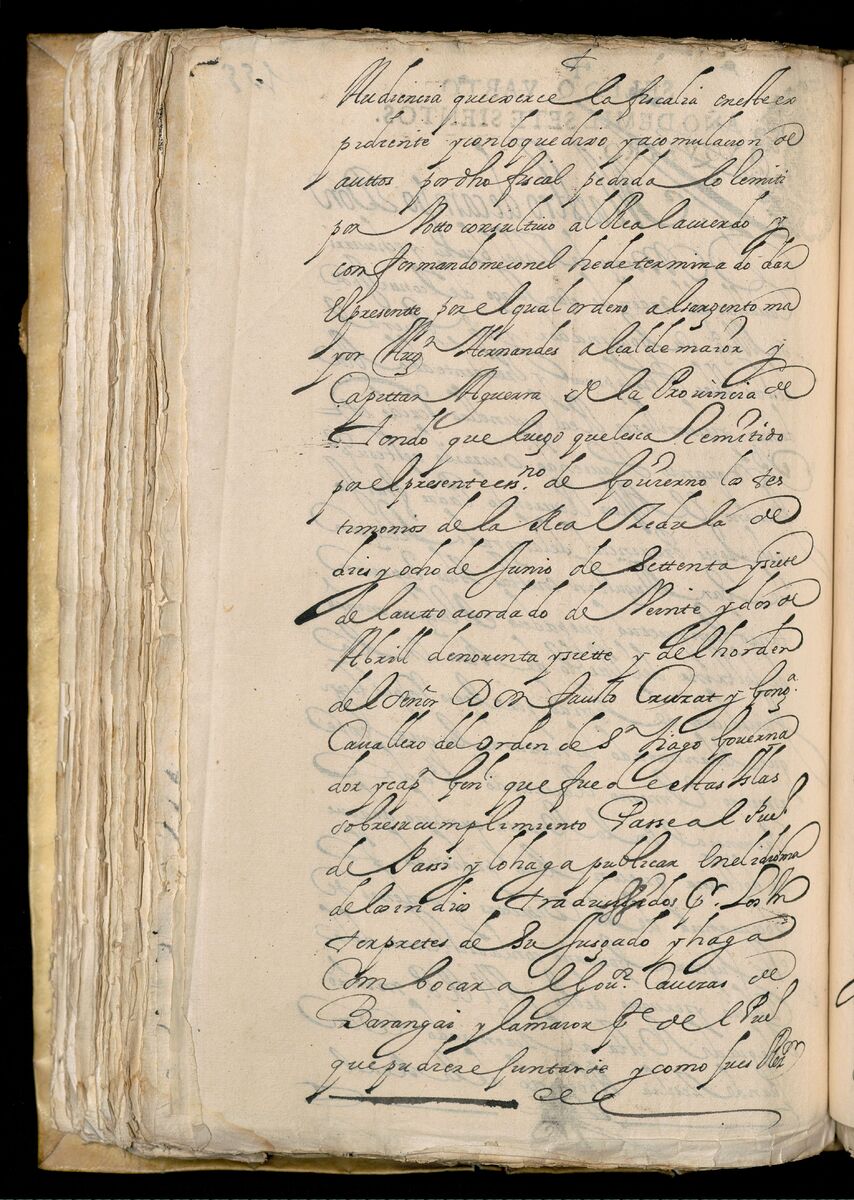 Audiencia que exerce la fiscalia en este ex
pediente y con lo que dixo y acomulacion de
auttos por dho fiscal pedida lo Remiti
por Votto consultivo al Real acuerdo y
conformandome con el he determinado dar
El presentte por el qual ordeno al sargento ma
yor Hernandes alcalde maior y
Capittan Aguerra de la Provincia de
tondo que luego que le sea Remitido
por el presente esno. de Govierno los tes
timonios de la Real Zedula de
dies y ocho de Junio de Settenta y siete
del autto acordado de Veinte y dos de
Abrill de noventa y siette y del horden
del Señor Dn fausto Cruzat y Gonga.
Cavallero del orden de Sn tiago Governa
dor y capn Genl. que fue de estas Islas
sobre su cumplimiento Passe al Puo
de Passi y lo haga publicar En el idioma
de los indios tradussidos Pr. Los In
terpretes de Su Jusgado y haga
Combocar al Govor. Caveras de
Barangai y la maior Pte del Puo
que pudiere Juntarse y como Jues